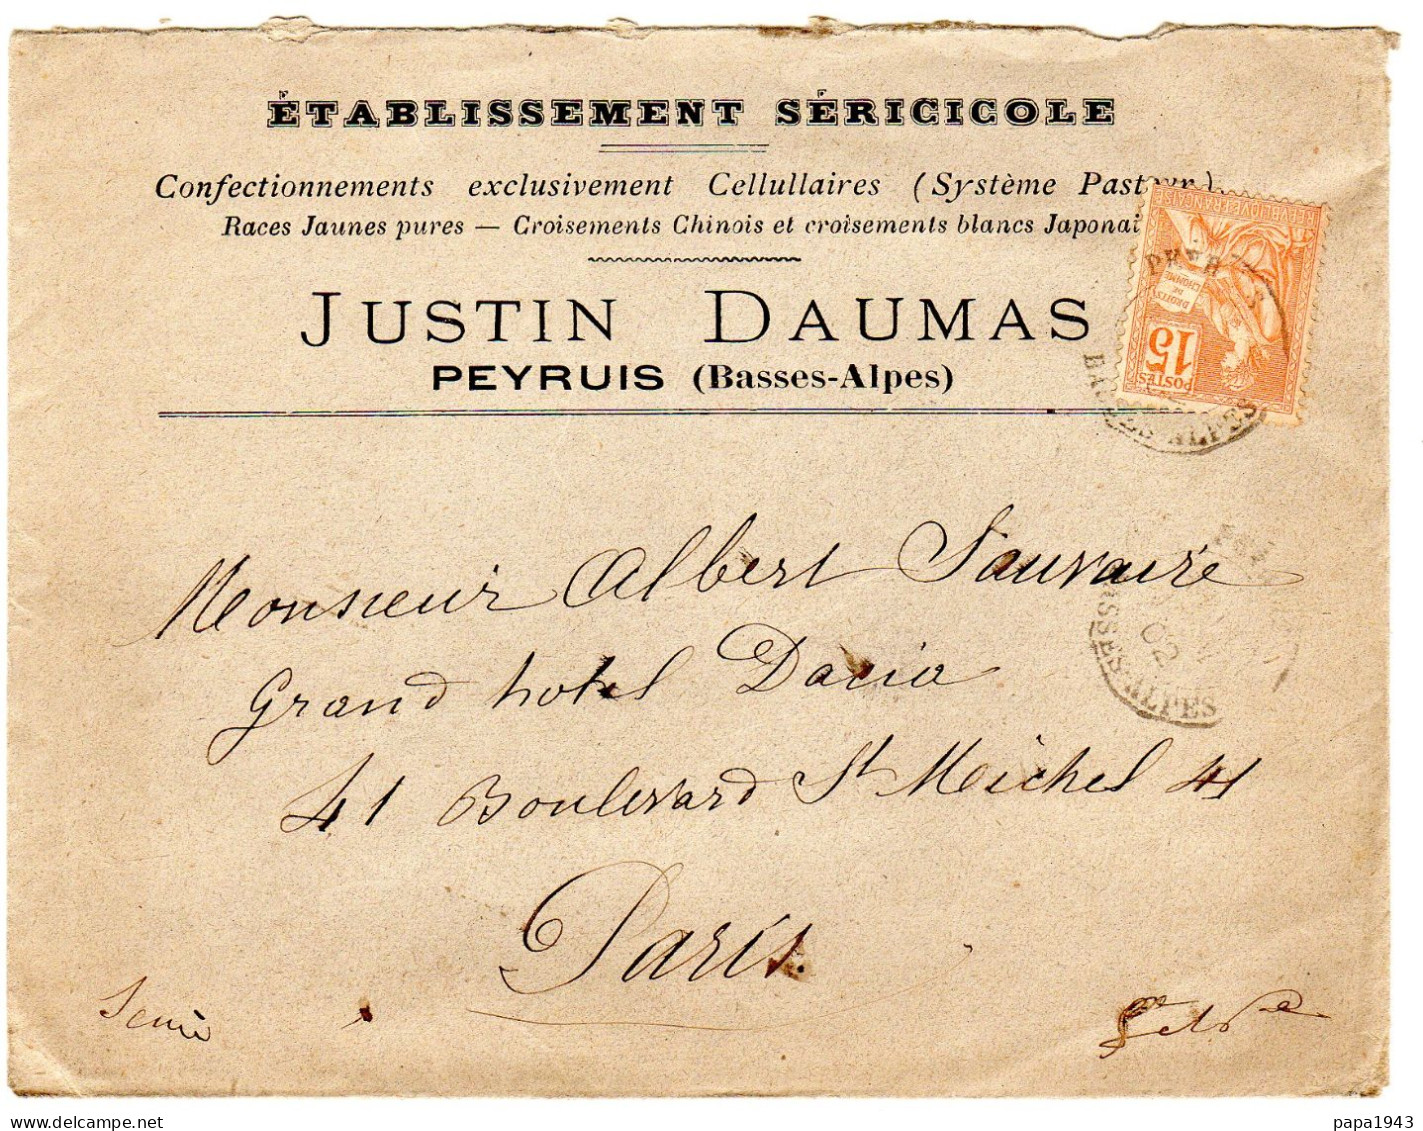 ÉTABLISSEMENT SÉRICICOLE
Confectionnements exclusivement Cellullaires (Système Pasteur).
Races Jaunes pures — Croisements Chinois et croisements blancs Japonai
JUSTIN DAUMAS
PEYRUIS (Basses-Alpes)
REPUBLIQUE FRANÇAISE
DROITS
DE
L'HOMME
15
POSTES
PEYR S
BASSES-ALPES
Monsieur Albert Sauvaire
Grand hotel Dacia
41 Boulevard St Michel 41
Paris.
02
BASSES-ALPES
delcampe.net
papa1943